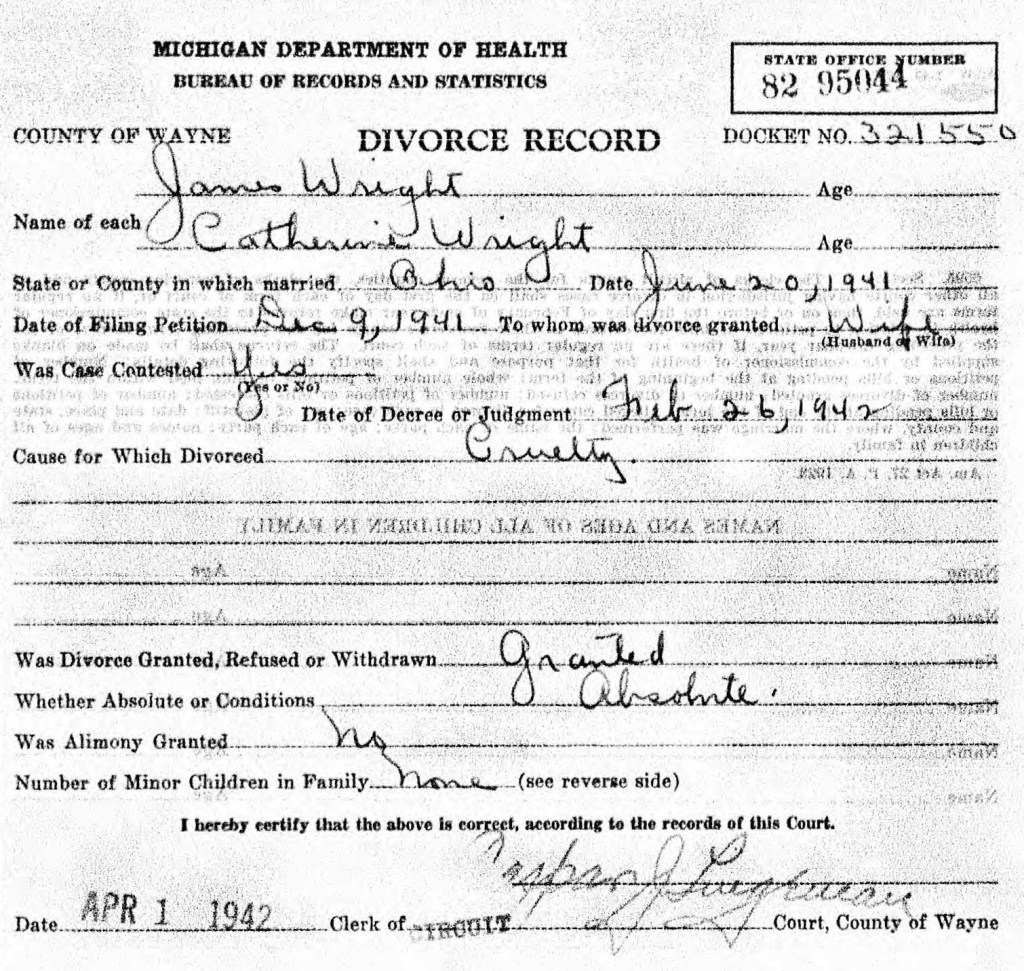 MICHIGAN DEPARTMENT OF HEALTH
BUREAU OF RECORDS AND STATISTICS
STATE OFFICE NUMBER
82 95044
COUNTY OF WAYNE DIVORCE RECORD DOCKET NO. 321550
James Wright Age
Name of each
Catherine Wright Age
State or County in which married, Ohio Date June 20, 1941
Date of Filing Petition Dec 9, 1941 To whom was divorce granted Wife
(Husband or Wife)
Was Case Contested Yes
(Yes or No)
Date of Decree or Judgment Feb 26, 1942
Cause for Which Divorced Cruelty.
Am. Act 27, P. A. 1923.
NAMES AND AGES OF ALL CHILDREN IN FAMILY
Name Age
Name Age
Was Divorce Granted, Refused or Withdrawn Granted
Whether Absolute or Conditions Absolute.
Was Alimony Granted No
Number of Minor Children in Family None (see reverse side)
I hereby certify that the above is correct, according to the records of this Court.
Caspar J. Lingeman
Date APR 1 1942 Clerk of CIRCUIT Court, County of Wayne